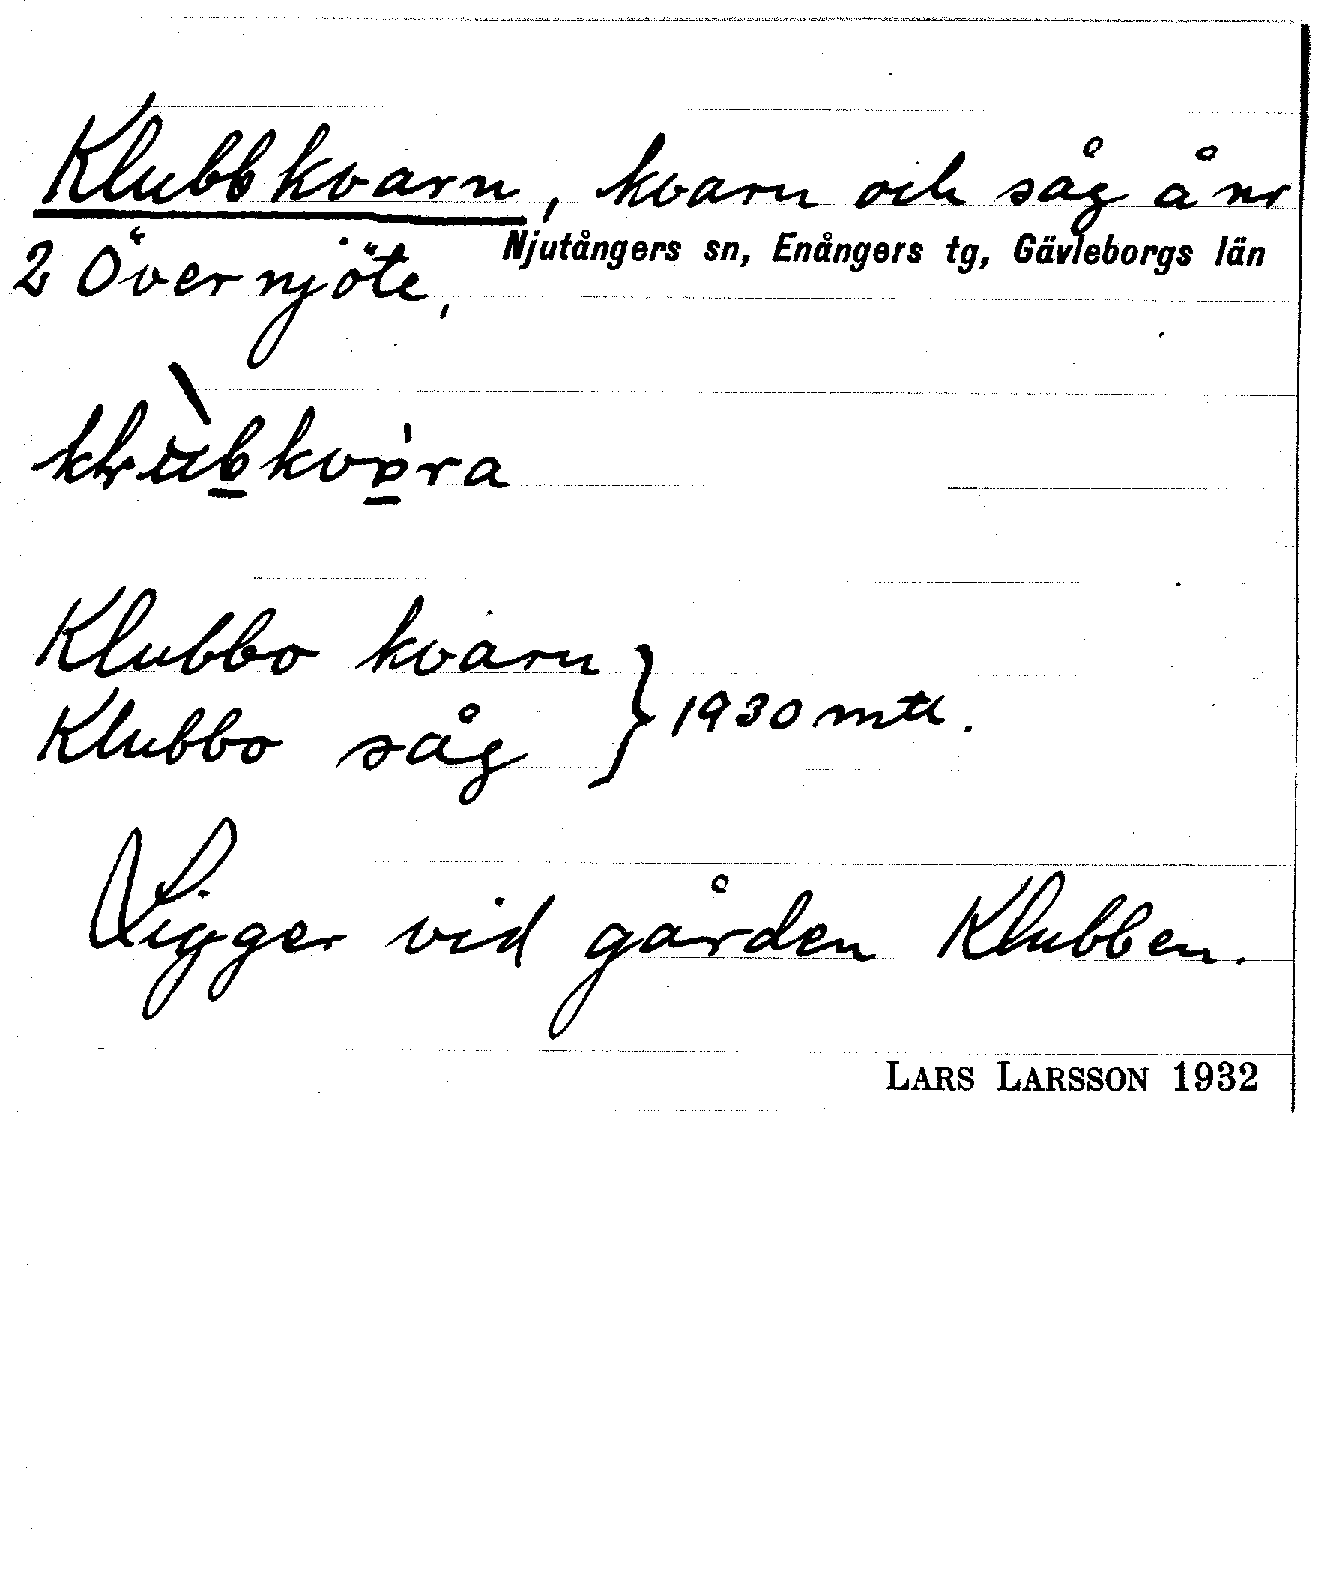 Klubbkvarn, kvarn och såg å nr
Njutångers sn, Enångers tg, Gävleborgs län
2 Övernjöte,
Klubbo kvarn
Klubbo såg } 1930 mtl.
Ligger vid gården Klubben.
LARS LARSSON 1932